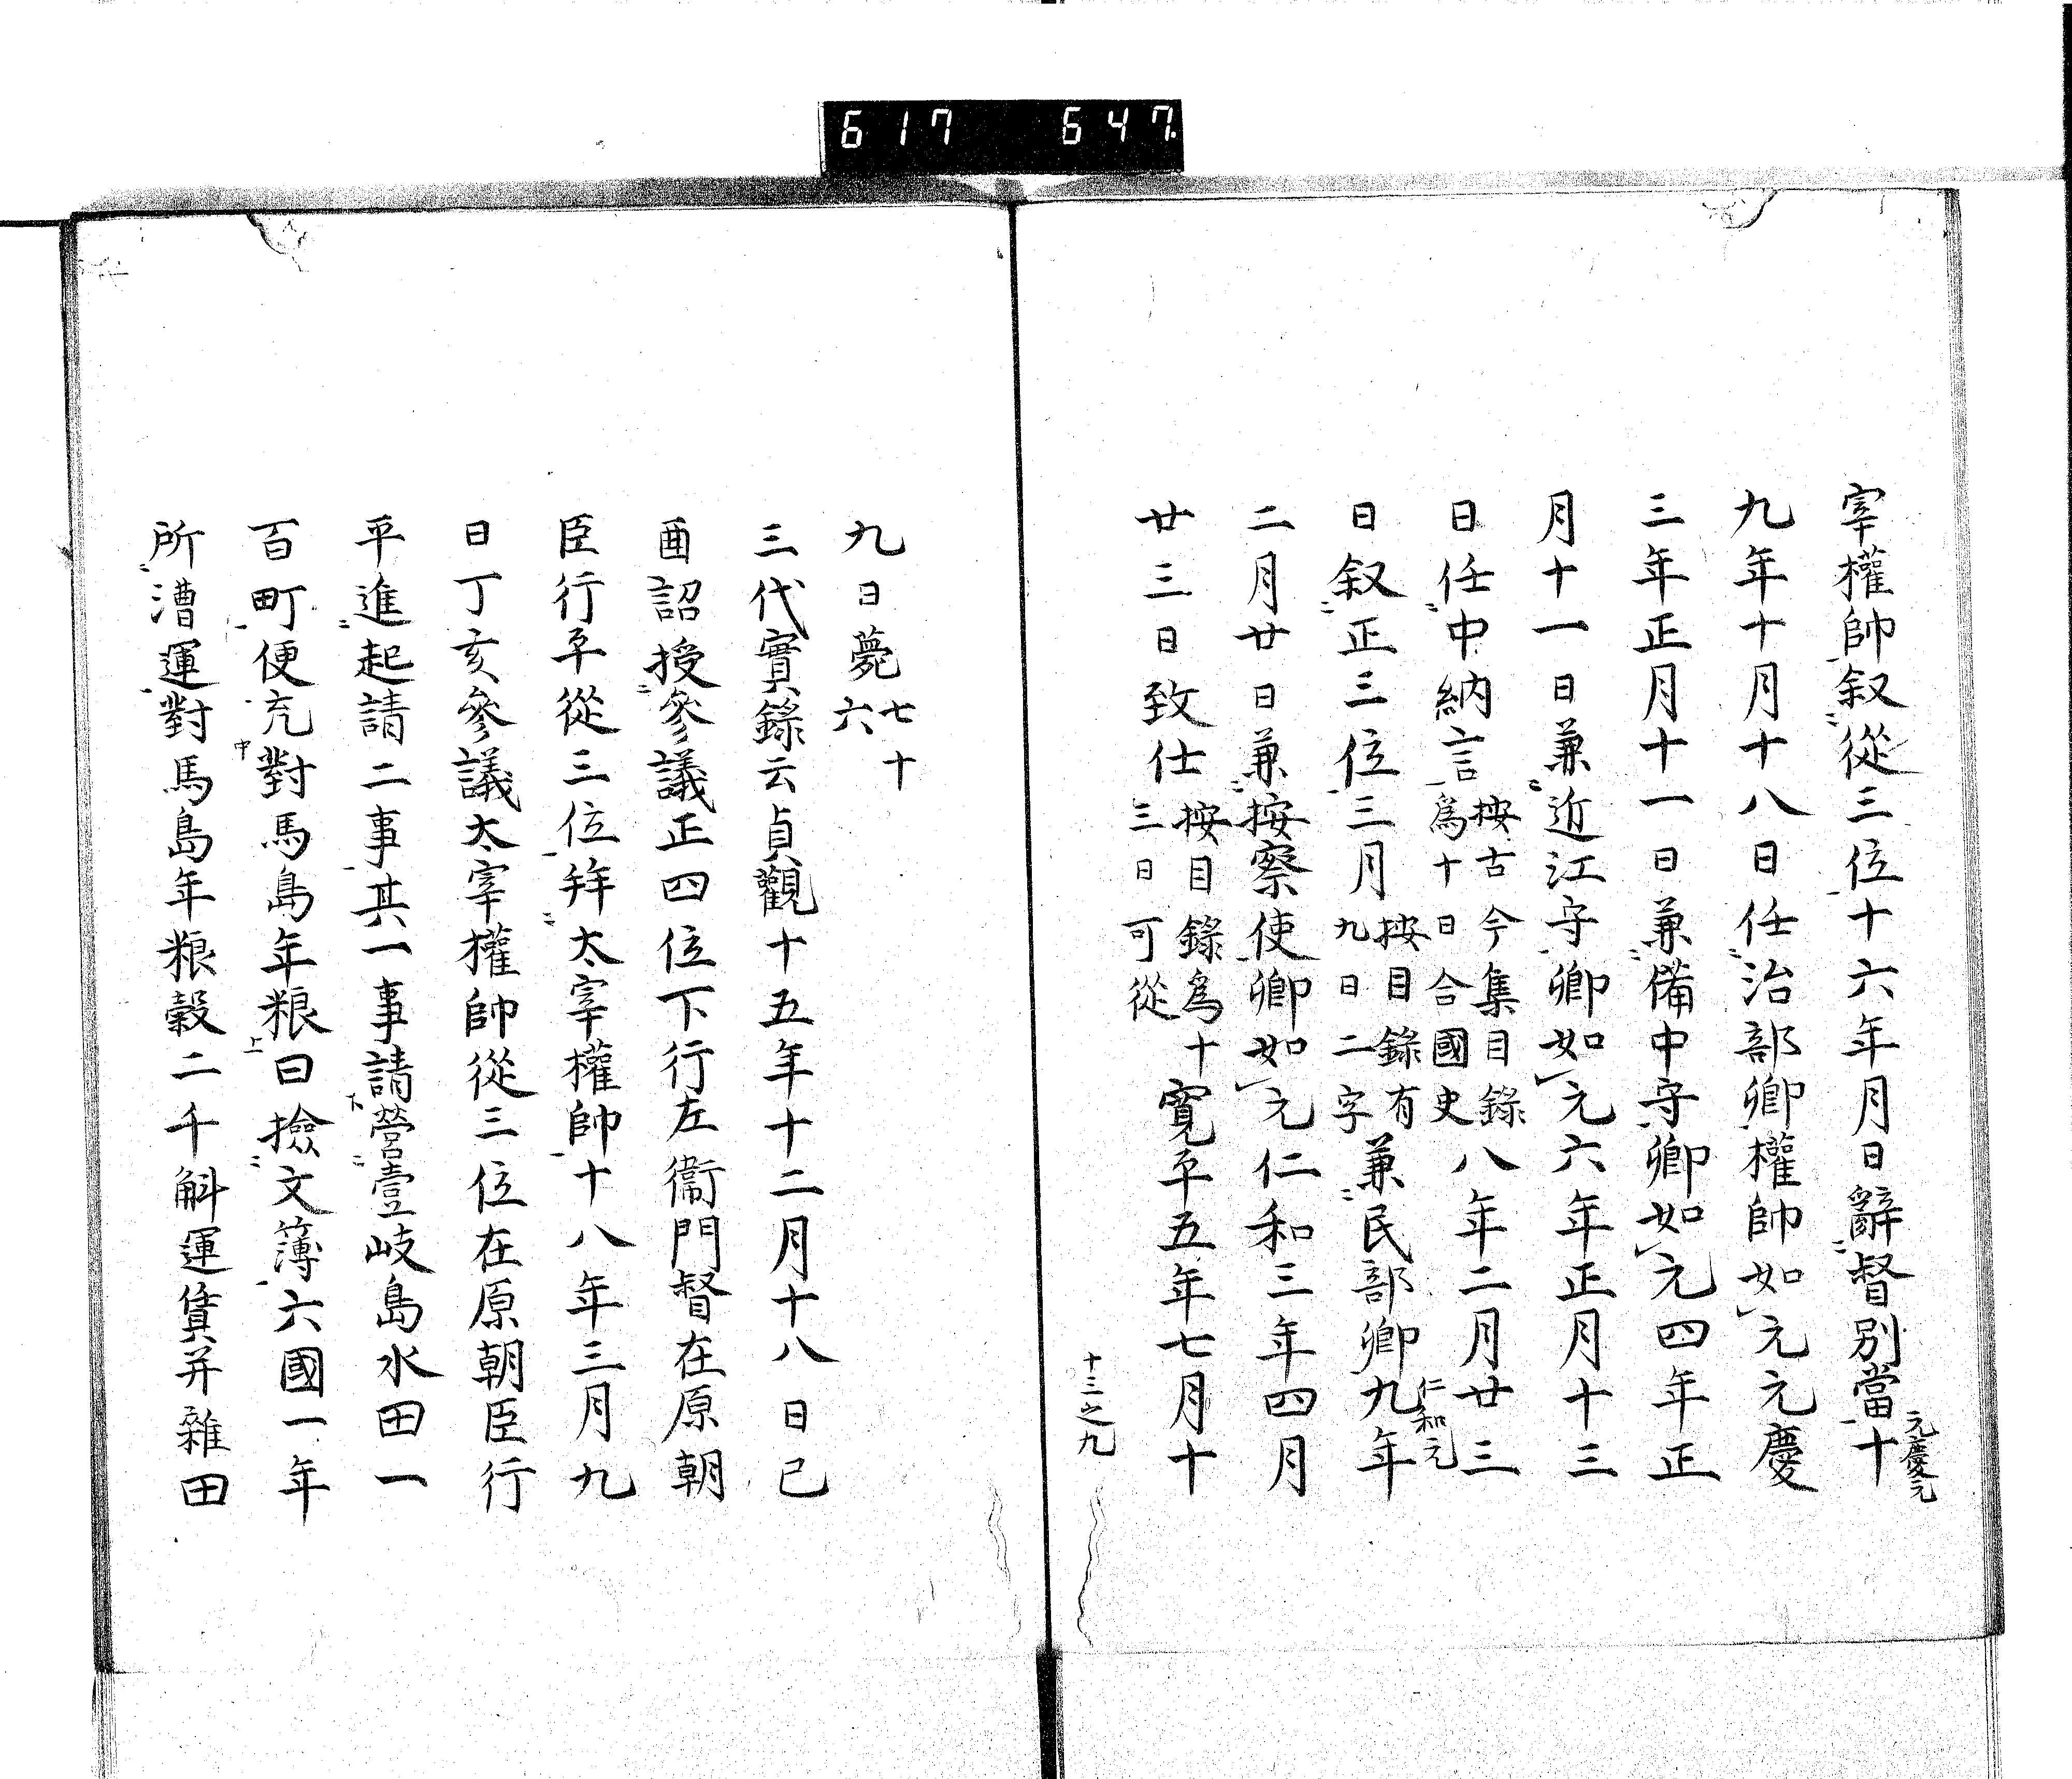 617 647.
宰權帥叙從三位十六年月日辭督別當十
元慶元
九年十月十八日任治部卿權帥如元元慶
三年正月十一日兼備中守卿如元四年正
月十一日兼近江守卿如元六年正月十三
日任中納言按古今集目錄爲十日合國史八年二月廿三
日叙正三位三月按目錄有九日二字兼民部卿九年
仁和元
二月廿日兼按察使卿如元仁和三年四月
廿三日致仕按目錄爲十三日可從寛平五年七月十
十三之九
九日薨七十六
三代實錄云貞觀十五年十二月十八日己
酉詔授參議正四位下行左衞門督在原朝
臣行平從三位拜太宰權帥十八年三月九
日丁亥參議太宰權帥從三位在原朝臣行
平進起請二事其一事請營壹岐島水田一
百町便充對馬島年粮曰撿文簿六國一年
所漕運對馬島年粮穀二千斛運賃并雜田